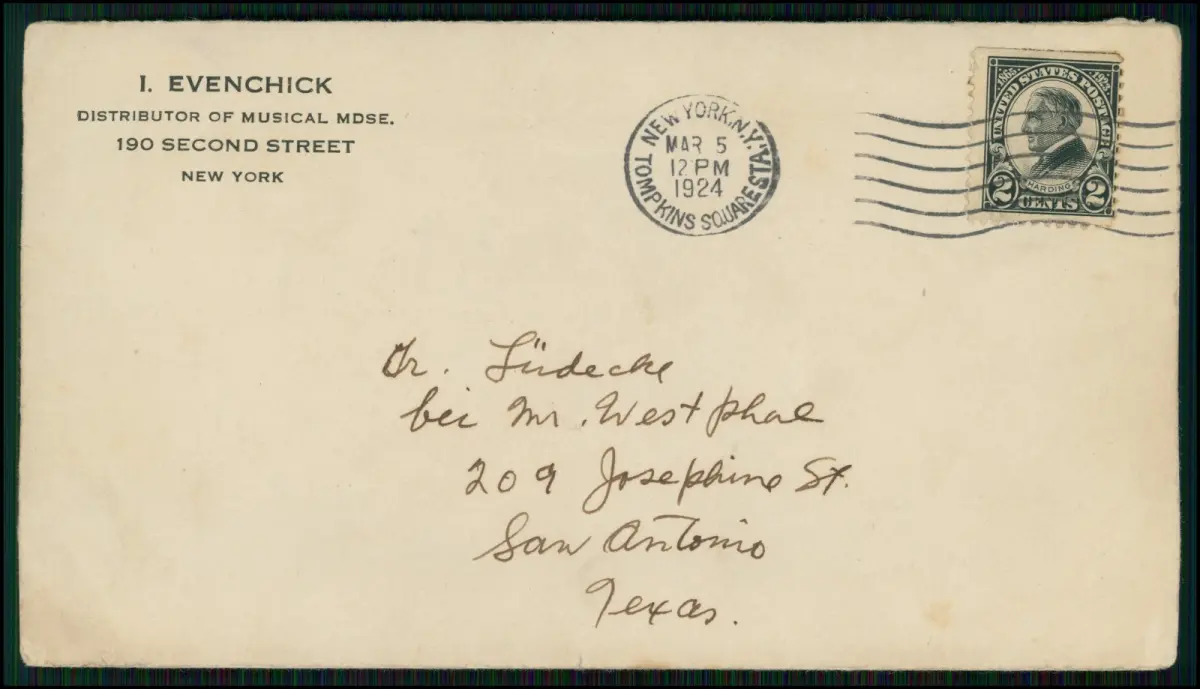 I. EVENCHICK
DISTRIBUTOR OF MUSICAL MDSE.
190 SECOND STREET
NEW YORK
NEW YORK, N.Y.
MAR 5
12 PM
1924
TOMPKINS SQUARE STA.
1865 1923
UNITED STATES POSTAGE
HARDING
2 CENTS 2
Dr. Lüdecke
bei Mr. Westphal
209 Josephine St.
San Antonio
Texas.